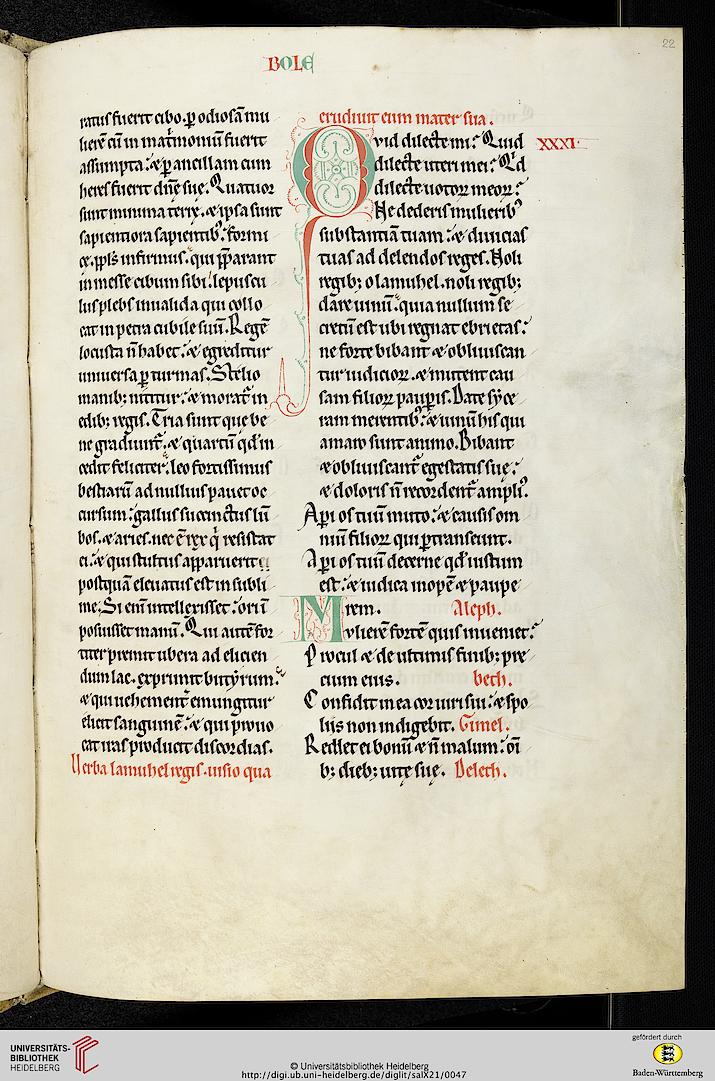 22
BOLE
ratus fuerit cibo. ꝑ odiosā mu
lierē cū in mat̄imoniū fuerit
assumpta. ⁊ ꝑ ancillam cum
heres fuerit dn̄ę suę. Quatuor
sunt minima terrę. ⁊ ipsa sunt
sapientiora sapientibꝰ. formi
cę. ppl̄s infirmus. qui p̄parant
in messe cibum sibi. lepuscu
lus plebs inualida qui collo
cat in petra cubile suū. Regē
locusta n̄ habet. ⁊ egreditur
uniuersa ꝑ turmas. Stelio
manibꝫ nititur. ⁊ morat̄ in
edibꝫ regis. Tria sunt que be
ne gradiunt̄. ⁊ quartū qd̄ in
cedit feliciter. leo fortissimus
bestiarū ad nullius pauet oc
cursum. gallus succinctus lū
bos. ⁊ aries. nec ē rex q̄ resistat
ei. ⁊ qui stultus apparuerit
postquā eleuatus est in subli
me. Si enī intellexisset. ori ī
posuisset manū. Qui autē for
titer premit ubera ad elicien
dum lac. exprimit butyrum.
⁊ qui uehement̄ emungitur
elicit sanguinē. ⁊ qui prouo
cat iras producit discordias.
Uerba lamuhel regis. uisio qua
erudiuit eum mater sua.
Quid dilecte mi. Quid XXXI.
dilecte uteri mei. Qd̄
dilecte uotoꝝ meoꝝ.
Ne dederis mulieribꝰ
substantiā tuam. ⁊ diuicias
tuas ad delendos reges. Noli
regibꝫ o lamuhel. noli regibꝫ
dare uinū. quia nullum se
cretū est ubi regnat ebrietas.
ne forte bibant ⁊ obliuiscan
tur iudicioꝝ. ⁊ mutent cau
sam filioꝝ pauꝑis. Date syce
ram merentibꝰ. ⁊ uinū his qui
amaro sunt animo. Bibant
⁊ obliuiscant̄ egestatis suę.
⁊ doloris n̄ recordent̄ ampliꝰ.
Aꝑi os tuū muto. ⁊ causis om
niū filioꝝ qui ꝑtranseunt.
Aꝑi os tuū decerne qd̄ iustum
est. ⁊ iudica inopē ⁊ paupe
rem. Aleph.
Mulierē fortē quis inueniet.
Procul ⁊ de ultimis finibꝫ pre
cium eius. beth.
Confidit in ea cor uiri sui. ⁊ spo
liis non indigebit. Gimel.
Reddet ei bonū ⁊ n̄ malum. oī
bꝫ diebꝫ uitę suę. Deleth.
UNIVERSITÄTS-
BIBLIOTHEK
HEIDELBERG
© Universitätsbibliothek Heidelberg
http://digi.ub.uni-heidelberg.de/diglit/salX21/0047
gefördert durch
Baden-Württemberg